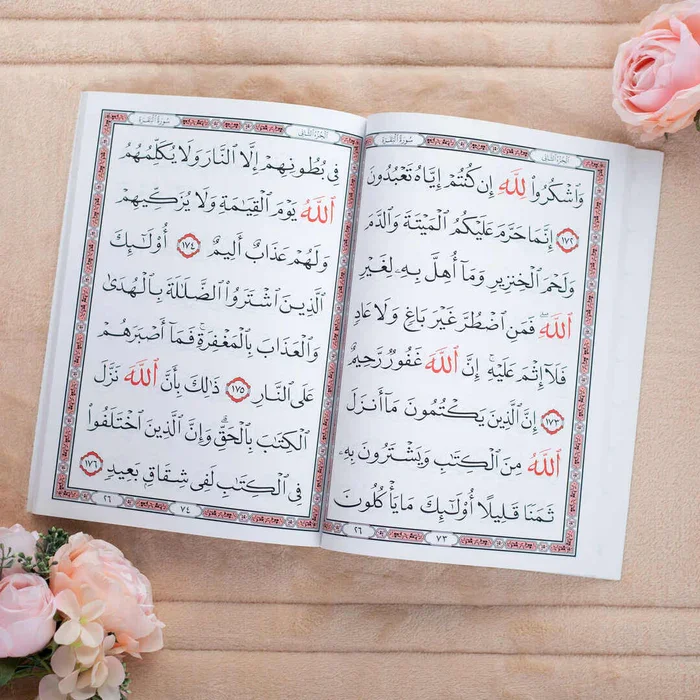 الجزء الثاني
سورة البقرة
وَٱشْكُرُوا۟ لِلَّهِ إِن كُنتُمْ إِيَّاهُ تَعْبُدُونَ
١٧٢ إِنَّمَا حَرَّمَ عَلَيْكُمُ ٱلْمَيْتَةَ وَٱلدَّمَ
وَلَحْمَ ٱلْخِنزِيرِ وَمَآ أُهِلَّ بِهِۦ لِغَيْرِ
ٱللَّهِۖ فَمَنِ ٱضْطُرَّ غَيْرَ بَاغٍ وَلَا عَادٍ
فَلَآ إِثْمَ عَلَيْهِۚ إِنَّ ٱللَّهَ غَفُورٌ رَّحِيمٌ
١٧٣ إِنَّ ٱلَّذِينَ يَكْتُمُونَ مَآ أَنزَلَ
ٱللَّهُ مِنَ ٱلْكِتَٰبِ وَيَشْتَرُونَ بِهِۦ
ثَمَنًا قَلِيلًا أُو۟لَٰٓئِكَ مَا يَأْكُلُونَ
٧٣
٢٦
الجزء الثاني
سورة البقرة
فِى بُطُونِهِمْ إِلَّا ٱلنَّارَ وَلَا يُكَلِّمُهُمُ
ٱللَّهُ يَوْمَ ٱلْقِيَٰمَةِ وَلَا يُزَكِّيهِمْ
وَلَهُمْ عَذَابٌ أَلِيمٌ ١٧٤ أُو۟لَٰٓئِكَ
ٱلَّذِينَ ٱشْتَرَوُا۟ ٱلضَّلَٰلَةَ بِٱلْهُدَىٰ
وَٱلْعَذَابَ بِٱلْمَغْفِرَةِۚ فَمَآ أَصْبَرَهُمْ
عَلَى ٱلنَّارِ ١٧٥ ذَٰلِكَ بِأَنَّ ٱللَّهَ نَزَّلَ
ٱلْكِتَٰبَ بِٱلْحَقِّۗ وَإِنَّ ٱلَّذِينَ ٱخْتَلَفُوا۟
فِى ٱلْكِتَٰبِ لَفِى شِقَاقٍۭ بَعِيدٍ ١٧٦
٧٤
٢٦